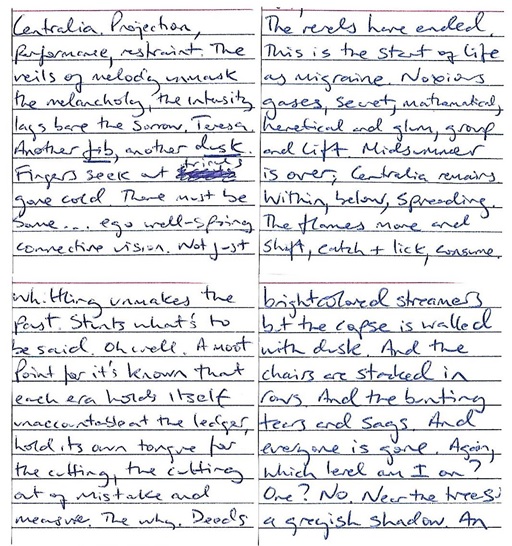 Centralia. Projection,
performance, restraint. The
veils of melody unmask
the melancholy, the intensity
lays bare the sorrow. Teresa.
Another fib, another dusk.
Fingers seek out things
gone cold. There must be
some... ego well-spring
connective vision. Not just
The revels have ended.
This is the start of life
as migraine. Noxious
gases, secret, mathematical,
heretical and glum, group
and lift. Midsummer
is over; Centralia remains.
Within, below, spreading.
The flames move and
shift, catch + lick, consume.
Whittling unmakes the
past. Stunts what's to
be said. Oh well. A moot
point for it's known that
each era holds itself
unaccountable at the ledger,
hold its own tongue for
the cutting, the cutting
out of mistake and
measure. The why. Deeds
brightcolored streamers
but the copse is walled
with dusk. And the
chairs are stacked in
rows. And the bunting
tears and sags. And
everyone is gone. Again,
which level am I on?
One? No. Near the trees:
a greyish shadow. An